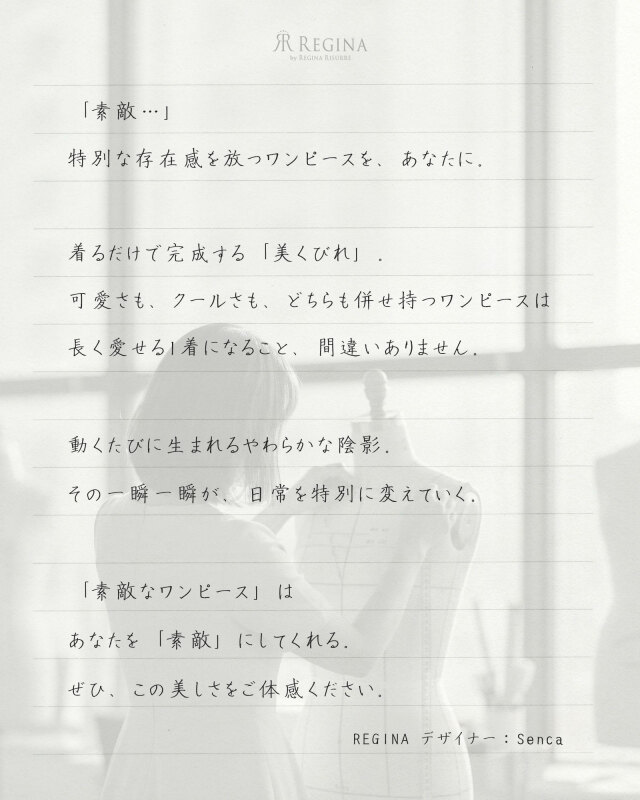 RR REGINA
by REGINA RISURRE
「素敵…」
特別な存在感を放つワンピースを、あなたに.
着るだけで完成する「美くびれ」.
可愛さも、クールさも、どちらも併せ持つワンピースは
長く愛せる1着になること、間違いありません.
動くたびに生まれるやわらかな陰影.
その一瞬一瞬が、日常を特別に変えていく.
「素敵なワンピース」は
あなたを「素敵」にしてくれる.
ぜひ、この美しさをご体感ください.
REGINA デザイナー：Senca